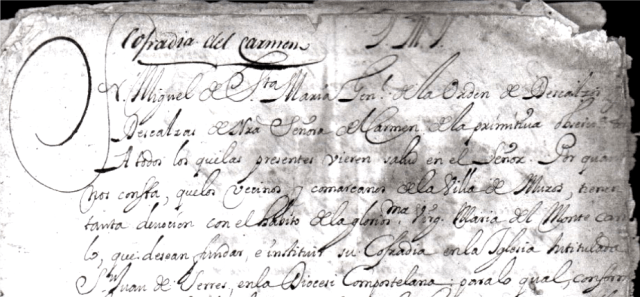 Cofradia del Carmen J. M. J.
Fr. Miguel de Sta. Maria Gen.l de la Orden de Descalzos y
Descalzas de Nra Señora del Carmen de la primitiva observa
A todos los que las presentes vieren salud en el Señor. Por quan
nos consta, que los vecinos y comarcanos de la Villa de Muros, tienen
tanta devocion con el habito de la glorios.ma Virg. Maria del Monte Carm
lo, que desean fundar, e instituir su Cofradia en la Iglesia Intitulada
Sn Juan de Serres, en la Diocesi Compostelana; para lo qual, conform